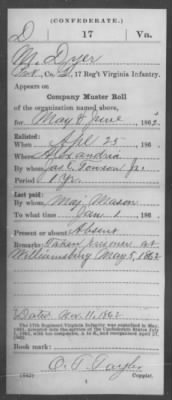 (CONFEDERATE.)
D 17 Va.
M. Dyer
Pvt., Co. 17 Reg't Virginia Infantry.
Appears on
Company Muster Roll
of the organization named above,
for May & June, 1862.
Enlisted:
When Apl 25, 186
Where Alexandria
By whom
Period 1 Yr.
Last paid:
By whom Maj.
To what time Jan. 1, 186
Present or absent Absent
Remarks: Taken prisoner at
Williamsburg May 5, 1862
Dated Nov. 11, 1862
The 17th Regiment Virginia Infantry was
Book mark:
O. T. Taylor
(642) Copyist.